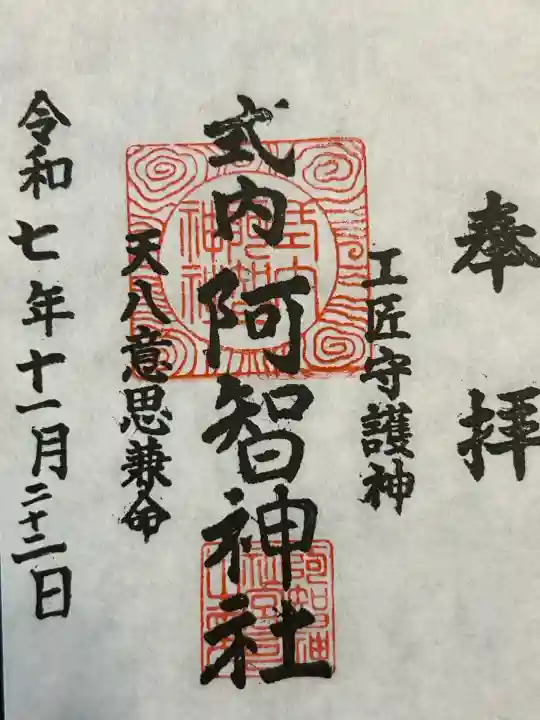 奉拝
工匠守護神
式内阿智神社
天八意思兼命
令和七年十一月二十二日